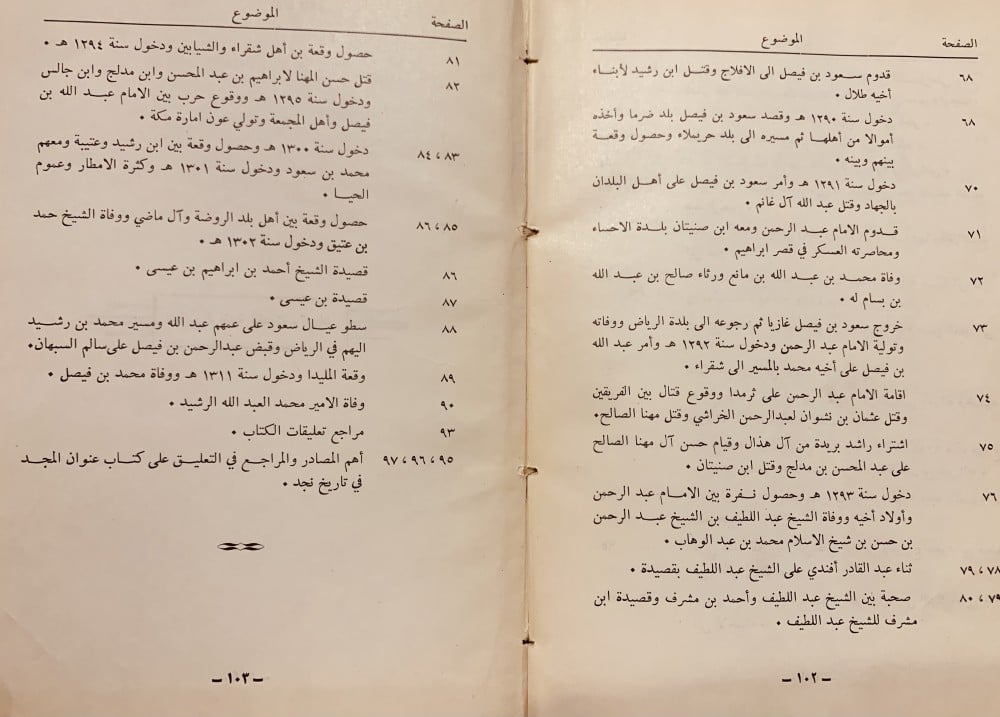 الصفحة الموضوع
٦٨ قدوم سعود بن فيصل الى الافلاج وقتل ابن رشيد لأبناء
أخيه طلال ٠
٦٨ دخول سنة ١٢٩٠ هـ وقصد سعود بن فيصل بلد ضرما وأخذه
أموالا من أهلها ثم مسيره الى بلد حريملاء وحصول وقعة
بينهم وبينه ٠
٧٠ دخول سنة ١٢٩١ هـ وأمر سعود بن فيصل على أهل البلدان
بالجهاد وقتل عبد الله آل غانم ٠
٧١ قدوم الامام عبد الرحمن ومعه ابن صنيتان بلدة الاحساء
ومحاصرته العسكر في قصر ابراهيم ٠
٧٢ وفاة محمد بن عبد الله بن مانع ورثاء صالح بن عبد الله
بن بسام له ٠
٧٣ خروج سعود بن فيصل غازيا ثم رجوعه الى بلدة الرياض ووفاته
وتولية الامام عبد الرحمن ودخول سنة ١٢٩٢ هـ وأمر عبد الله
بن فيصل على أخيه محمد بالمسير الى شقراء ٠
٧٤ اقامة الامام عبد الرحمن على ثرمدا ووقوع قتال بين الفريقين
وقتل عثمان بن نشوان لعبدالرحمن الخراشي وقتل مهنا الصالح٠
٧٥ اشتراء راشد بريدة من آل هذال وقيام حسن آل مهنا الصالح
على عبد المحسن بن مدلج وقتل ابن صنيتان ٠
٧٦ دخول سنة ١٢٩٣ هـ وحصول نفرة بين الامام عبد الرحمن
وأولاد أخيه ووفاة الشيخ عبد اللطيف بن الشيخ عبد الرحمن
بن حسن بن شيخ الاسلام محمد بن عبد الوهاب ٠
٧٨ ، ٧٩ ثناء عبد القادر أفندي على الشيخ عبد اللطيف بقصيدة ٠
٧٩ ، ٨٠ صحبة بين الشيخ عبد اللطيف وأحمد بن مشرف وقصيدة ابن
مشرف للشيخ عبد اللطيف ٠
– ١٠٢ –
الصفحة الموضوع
٨١ حصول وقعة بن أهل شقراء والشيابين ودخول سنة ١٢٩٤ هـ ٠
٨٢ قتل حسن المهنا لابراهيم بن عبد المحسن وابن مدلج وابن جالس
ودخول سنة ١٢٩٥ هـ ووقوع حرب بين الامام عبد الله بن
فيصل وأهل المجمعة وتولي عون امارة مكة ٠
٨٣ ، ٨٤ دخول سنة ١٣٠٠ هـ وحصول وقعة بين ابن رشيد وعتيبة ومعهم
محمد بن سعود ودخول سنة ١٣٠١ هـ وكثرة الامطار وعموم
الحيا ٠
٨٥ ، ٨٦ حصول وقعة بين أهل بلد الروضة وآل ماضي ووفاة الشيخ حمد
بن عتيق ودخول سنة ١٣٠٢ هـ ٠
٨٦ قصيدة الشيخ أحمد بن ابراهيم بن عيسى ٠
٨٧ قصيدة بن عيسى ٠
٨٨ سطو عيال سعود على عمهم عبد الله ومسير محمد بن رشيد
اليهم في الرياض وقبض عبدالرحمن بن فيصل على سالم السبهان٠
٨٩ وقعة المليدا ودخول سنة ١٣١١ هـ ووفاة محمد بن فيصل ٠
٩٠ وفاة الامير محمد العبد الله الرشيد ٠
٩٣ مراجع تعليقات الكتاب ٠
٩٥ ، ٩٦ ، ٩٧ أهم المصادر والمراجع في التعليق على كتاب عنوان المجد
في تاريخ نجد ٠
– ١٠٣ –